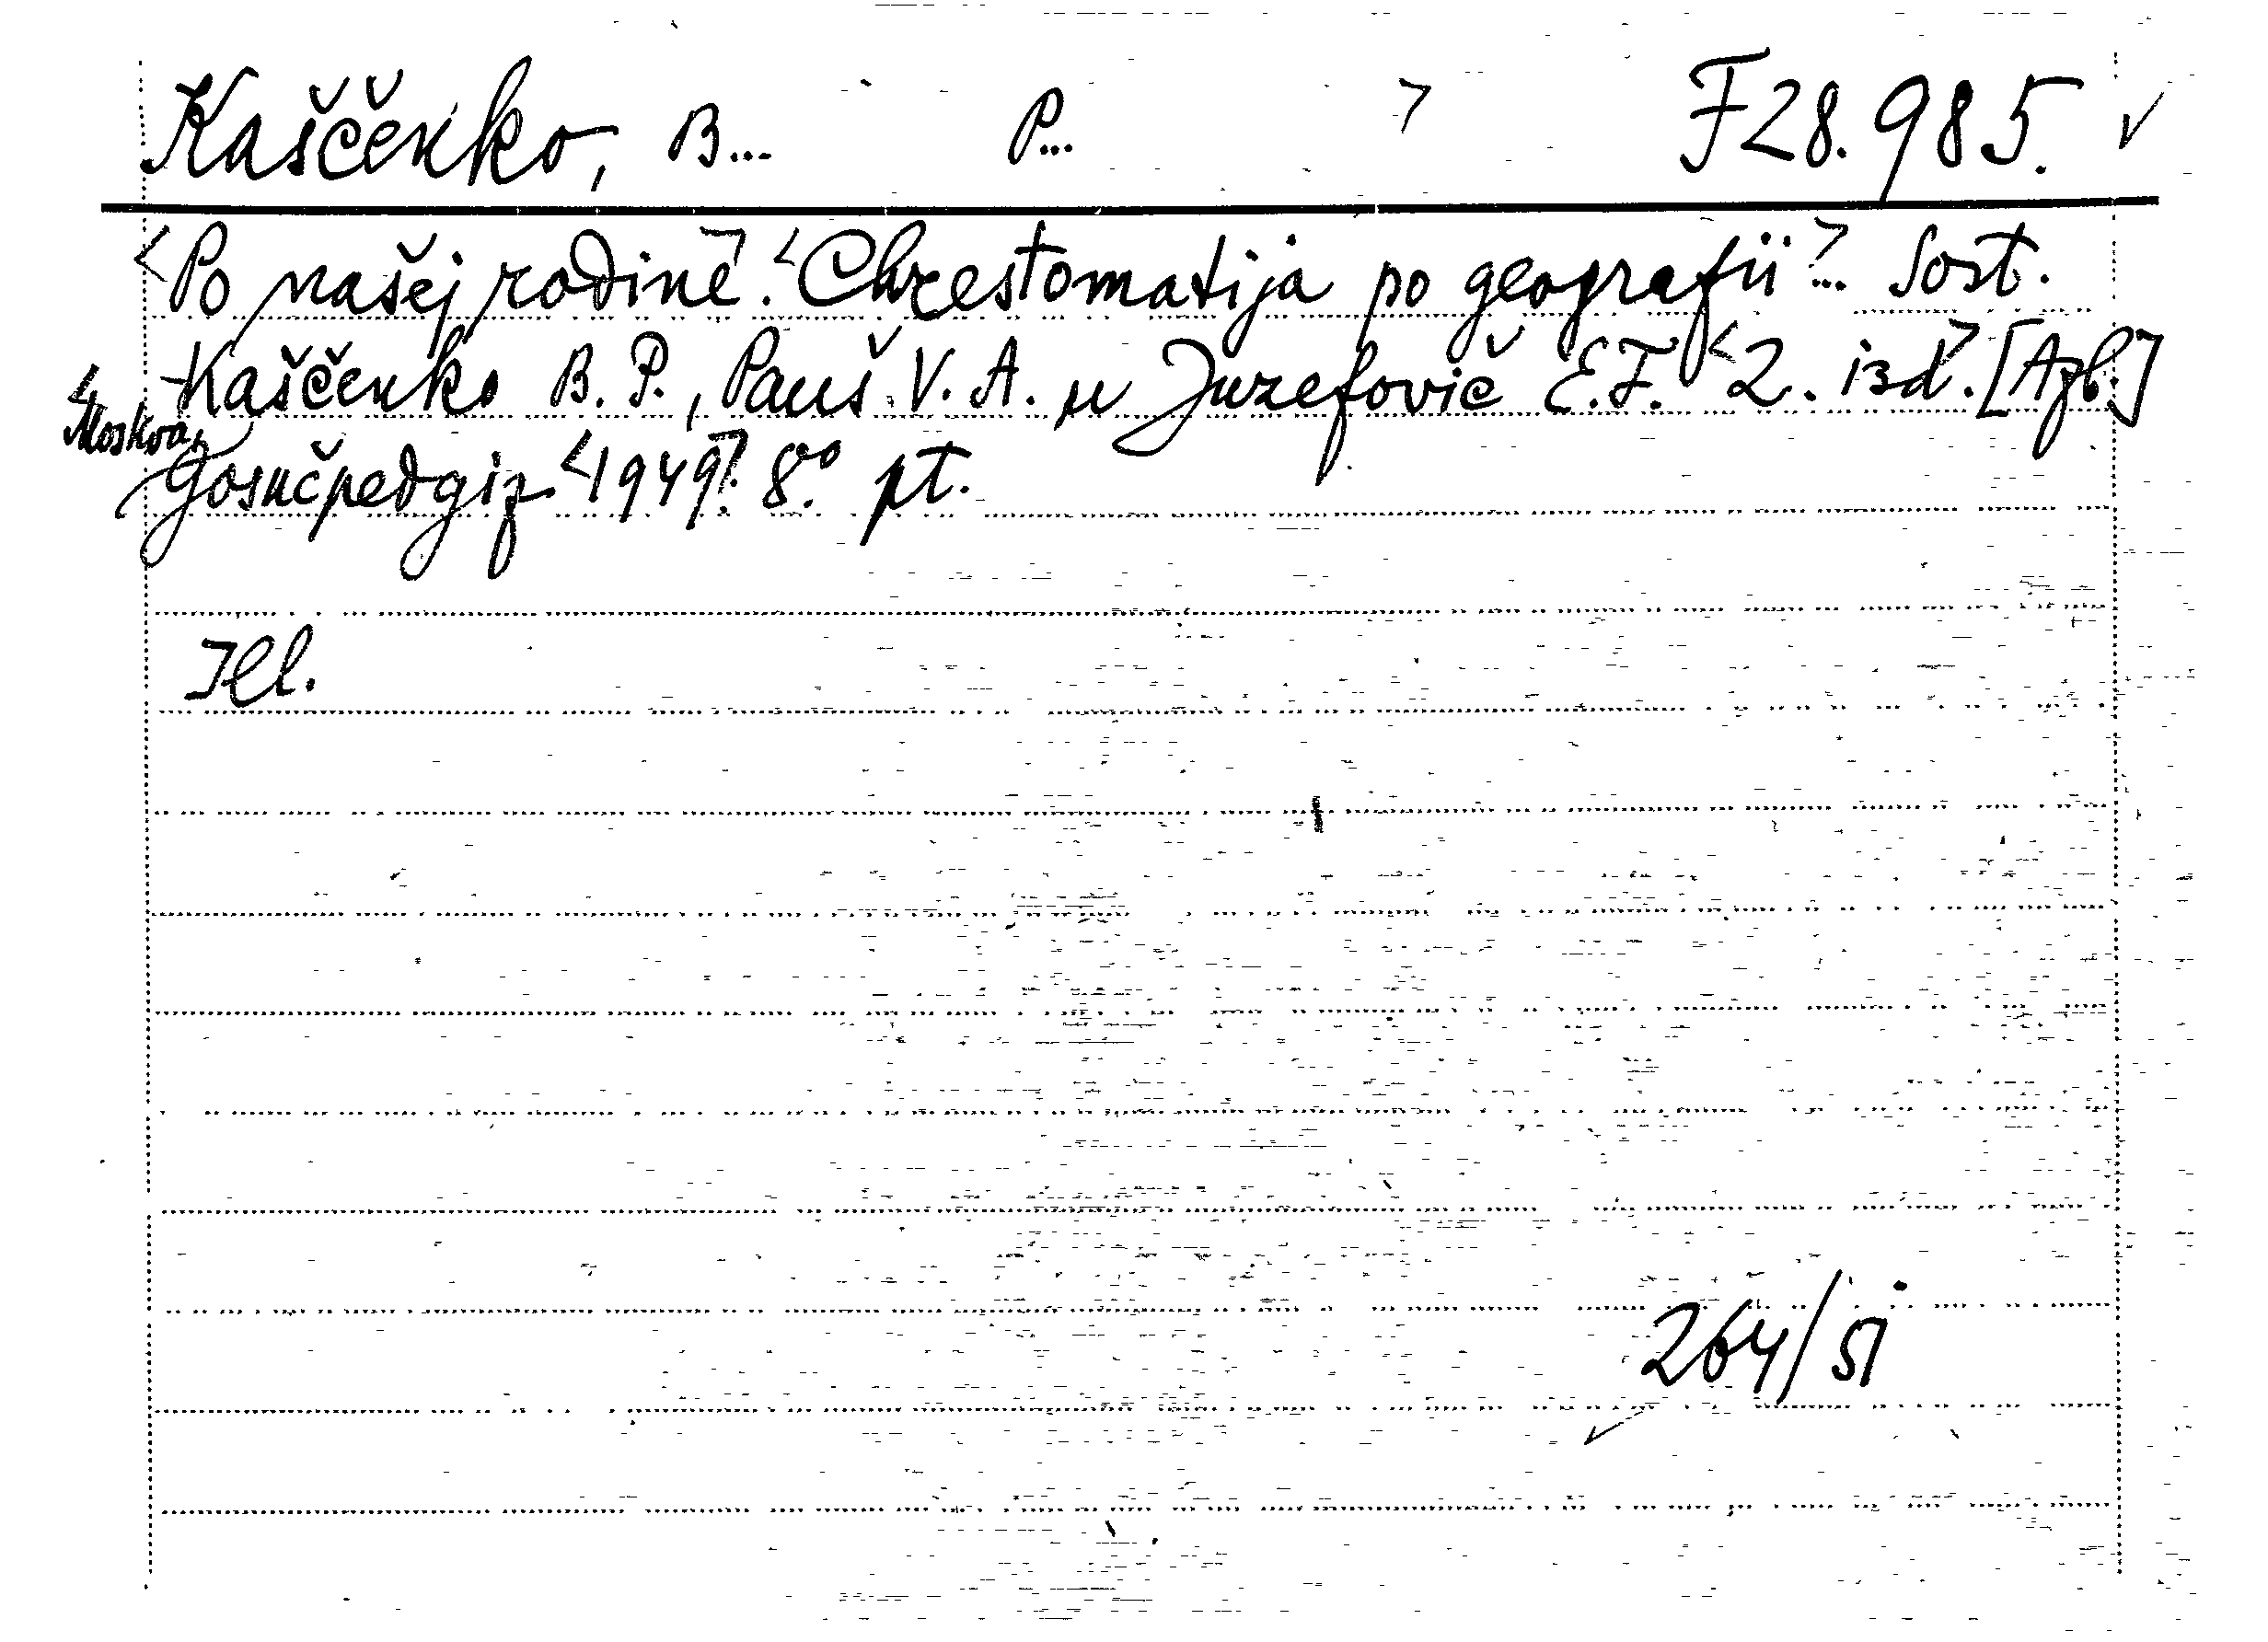 Kaščenko, B... P... > F28.985. ✓
<Po našej rodine>. <Chrestomatija po geografii>... Sost.
Kaščenko B. P., Pauš V. A. u Juzefovič E. F. <2. izd>. [Azb.]
<Moskva,
Gosučpedgiz <1949>. 8° pt.
Ill.
264/51